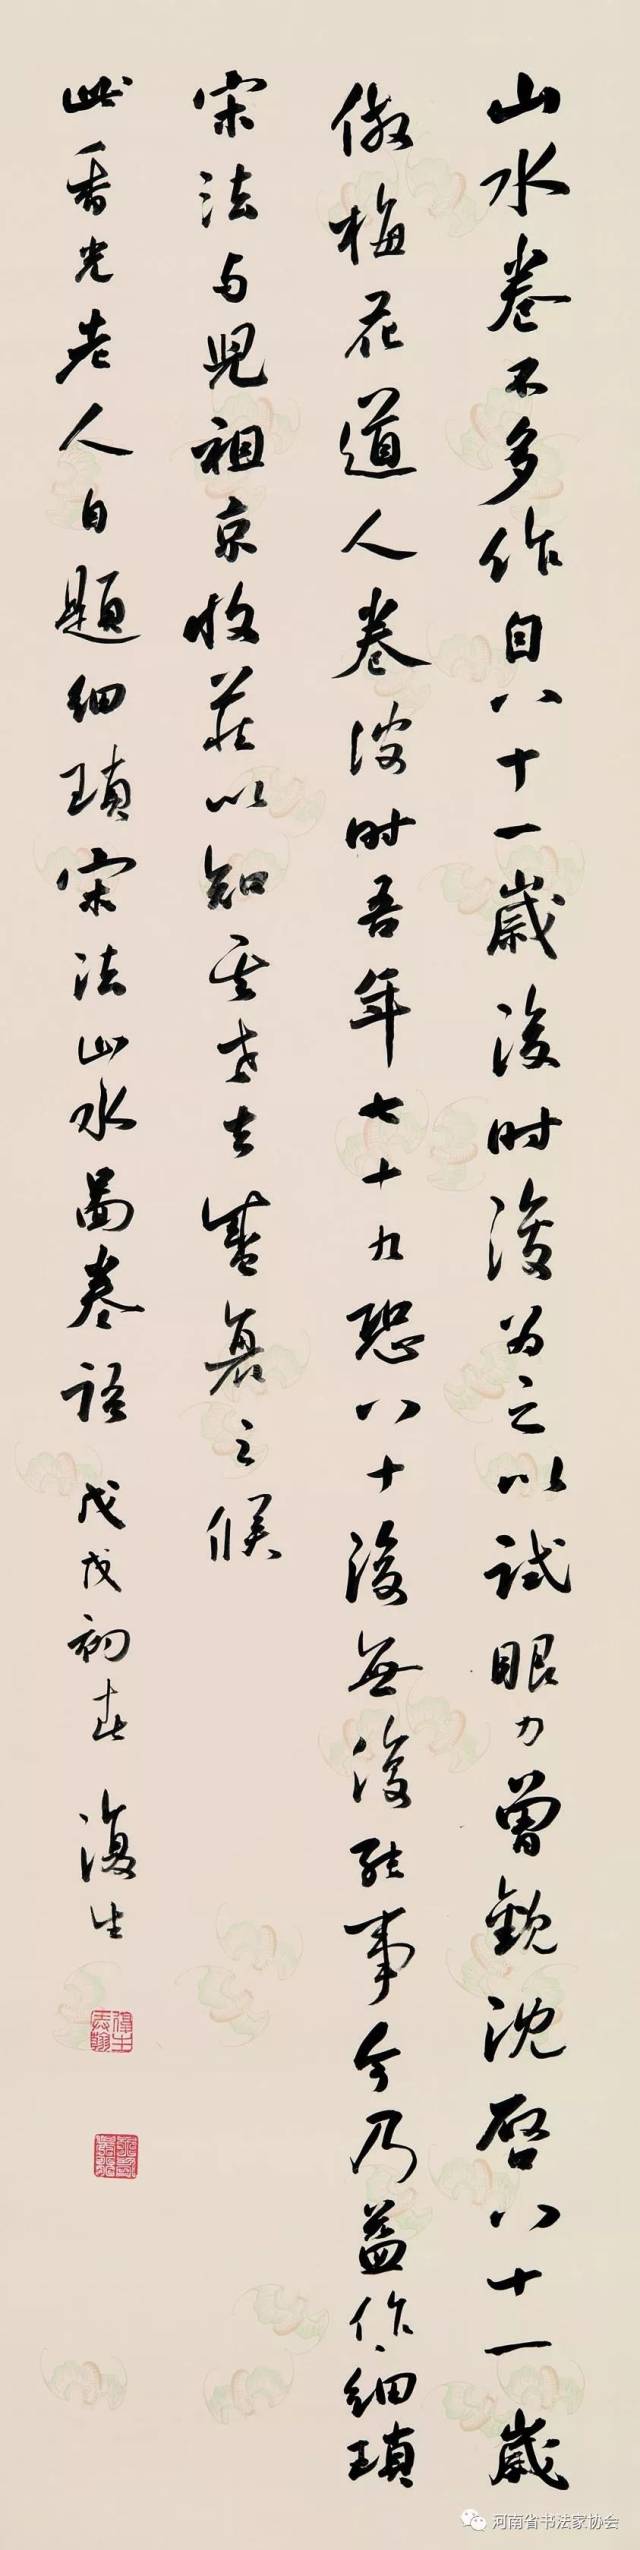 山水卷不多作自八十一歲後时復为之以試眼力曾觀沈啓八十一歲
倣梅花道人卷彼时吾年七十九恐八十後無復能事今乃益作細瑣
宋法与兒祖京收藏以知其老去盛衰之候
此香光老人自題細瑣宋法山水圖卷語 戊戌初春 復生
河南省书法家协会